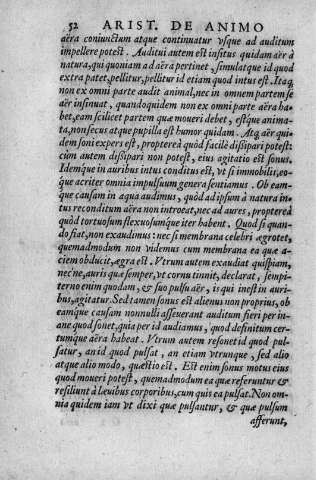 52 ARIST. DE ANIMO
aëra coniunctum atque continuatur vsque ad auditum
impellere potest. Auditui autem est insitus quidam aër à
natura, qui quoniam ad aëra pertinet, simulatque id quod
extra patet, pellitur, pellitur id etiam quod intus est. Itaq;
non ex omni parte audit animal, nec in omnem partem se
aër insinuat, quandoquidem non ex omni parte aëra ha-
bet, eam scilicet partem quæ moueri debet, estq́ue anima-
ta, non secus atque pupilla est humor quidam. Atq; aër qui-
dem soni expers est, propterea quòd facilè dissipari potest:
cùm autem dissipari non potest, eius agitatio est sonus.
Idemq́ue in auribus intus conditus est, vt si immobilis, eo-
que acriter omnia impulsuum genera sentiamus. Ob eam-
que causam in aqua audimus, quòd ad ipsum à natura in-
tus reconditum aëra non introeat, nec ad aures, propterea
quòd tortuosum flexuosumq́ue iter habent. Quod si quan-
do fiat, non exaudimus: nec si membrana celebri ægrotet,
quemadmodum non videmus cum membrana ea quæ a-
ciem obducit, ægra est. Vtrum autem exaudiat quispiam,
nec'ne, auris quæ semper, vt cornu tinnit, declarat, sempi-
terno enim quodam, & suo pulsu aër, is qui inest in auri-
bus, agitatur. Sed tamen sonus est alienus non proprius, ob
eamq́ue causam nonnulli asseuerant auditum fieri per in-
ane quod sonet, quia per id audiamus, quod definitum cer-
tumque aëra habeat. Vtrum autem resonet id quod pul-
satur, an id quod pulsat, an etiam vtrunque, sed alio
atque alio modo, quæstio est. Est enim sonus motus eius
quod moueri potest, quemadmodum ea quæ referuntur &
resiliunt à læuibus corporibus, cum quis ea pulsat. Non om-
nia quidem iam vt dixi quæ pulsantur, & quæ pulsum
afferunt,